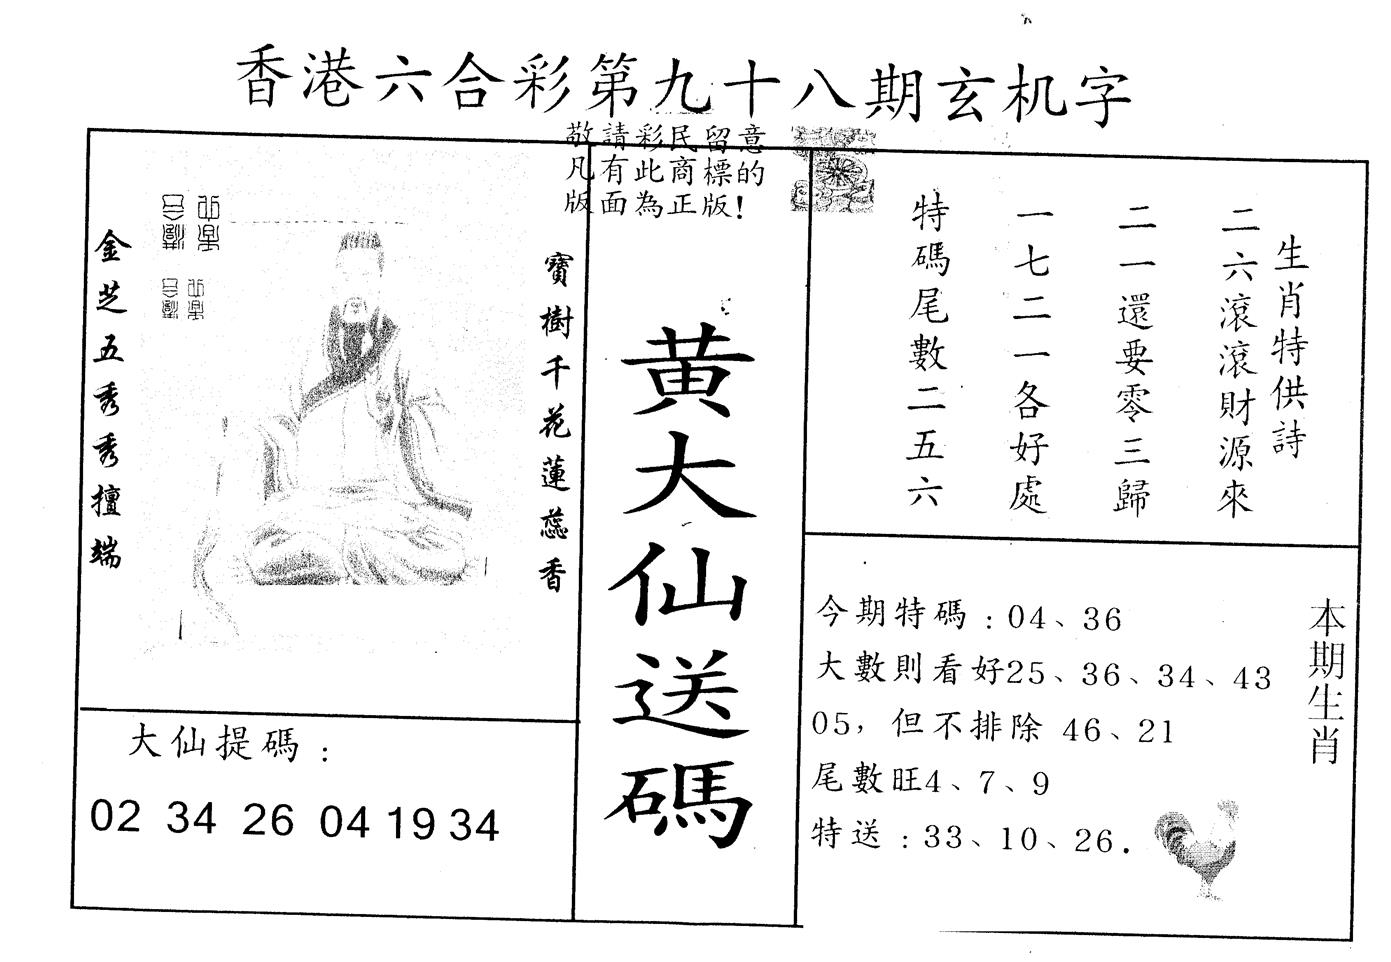 香港六合彩第九十八期玄机字
敬請彩民留意
凡有此商標的
版面為正版！
金芝五秀秀擅端
寶樹千花蓮蕊香
大仙提碼：
02 34 26 04 19 34
黄大仙送碼
生肖特供詩
二六滾滾財源來
二一還要零三歸
一七二一各好處
特碼尾數二五六
本期生肖
今期特碼：04、36
大數則看好25、36、34、43
05，但不排除 46、21
尾數旺4、7、9
特送：33、10、26.